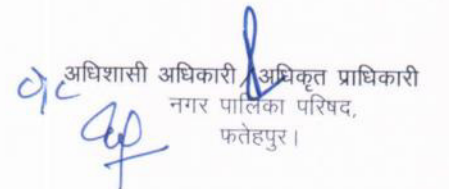 अधिशासी अधिकारी/अधिकृत प्राधिकारी
नगर पालिका परिषद,
फतेहपुर।